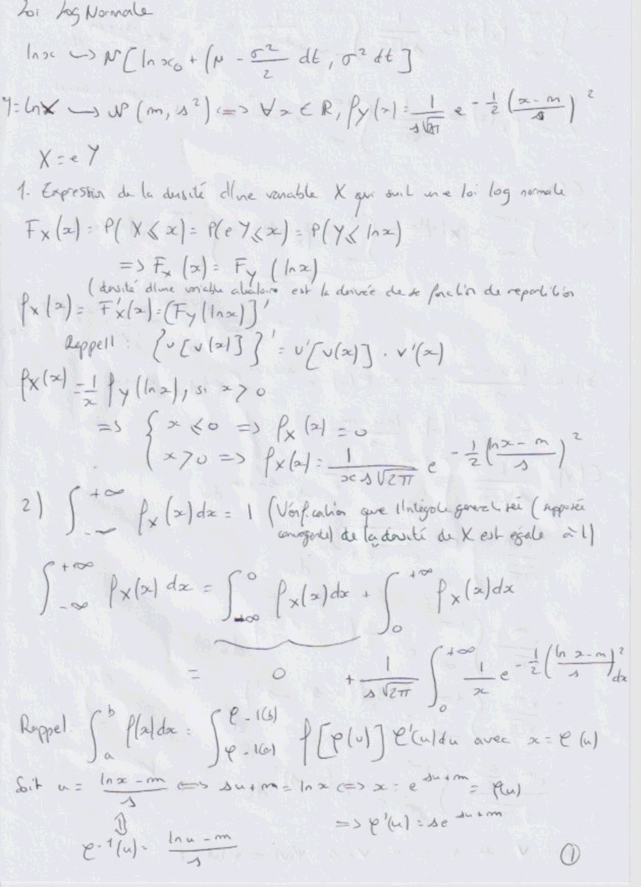 Loi Log Normale
lnx ~> N[lnx₀ + (μ - σ²/2 dt, σ² dt]
Y=lnX ~> N(m, s²) <=> ∀x ∈ R, f_Y(x) = 1/(s√2π) e^(-1/2 ((x-m)/s)²)
X = e^Y
1. Expression de la densité d'une variable X qui suit une loi log normale
F_X(x) = P(X ≤ x) = P(e^Y ≤ x) = P(Y ≤ lnx)
=> F_X(x) = F_Y(lnx)
(densité d'une variable aléatoire est la dérivée de sa fonction de repartition
f_X(x) = F'_X(x) = (F_Y(lnx)]'
Rappell : {u[v(x)]}' = u'[v(x)] . v'(x)
f_X(x) = 1/x f_Y(lnx), si x > 0
=> { x ≤ 0 => f_X(x) = 0
x > 0 => f_X(x) = 1/(x s√2π) e^(-1/2 ((lnx-m)/s)²)
2) ∫_{-∞}^{+∞} f_X(x)dx = 1 (Vérification que l'intégrale generalisée (supposée
convergente) de la densité de X est égale à 1)
∫_{-∞}^{+∞} f_X(x) dx = ∫_{-∞}^{0} f_X(x)dx + ∫_{0}^{+∞} f_X(x)dx
= 0 + 1/(s√2π) ∫_{0}^{+∞} 1/x e^(-1/2 ((ln x-m)/s)²) dx
Rappel ∫_{a}^{b} f(x)dx = ∫_{φ-1(a)}^{φ-1(b)} f[φ(u)] φ'(u)du avec x = φ(u)
Soit u = (lnx-m)/s <=> su+m = lnx <=> x = e^(su+m) = φ(u)
⇕ => φ'(u) = se^(su+m)
φ^-1(u) = (lnu-m)/s
①